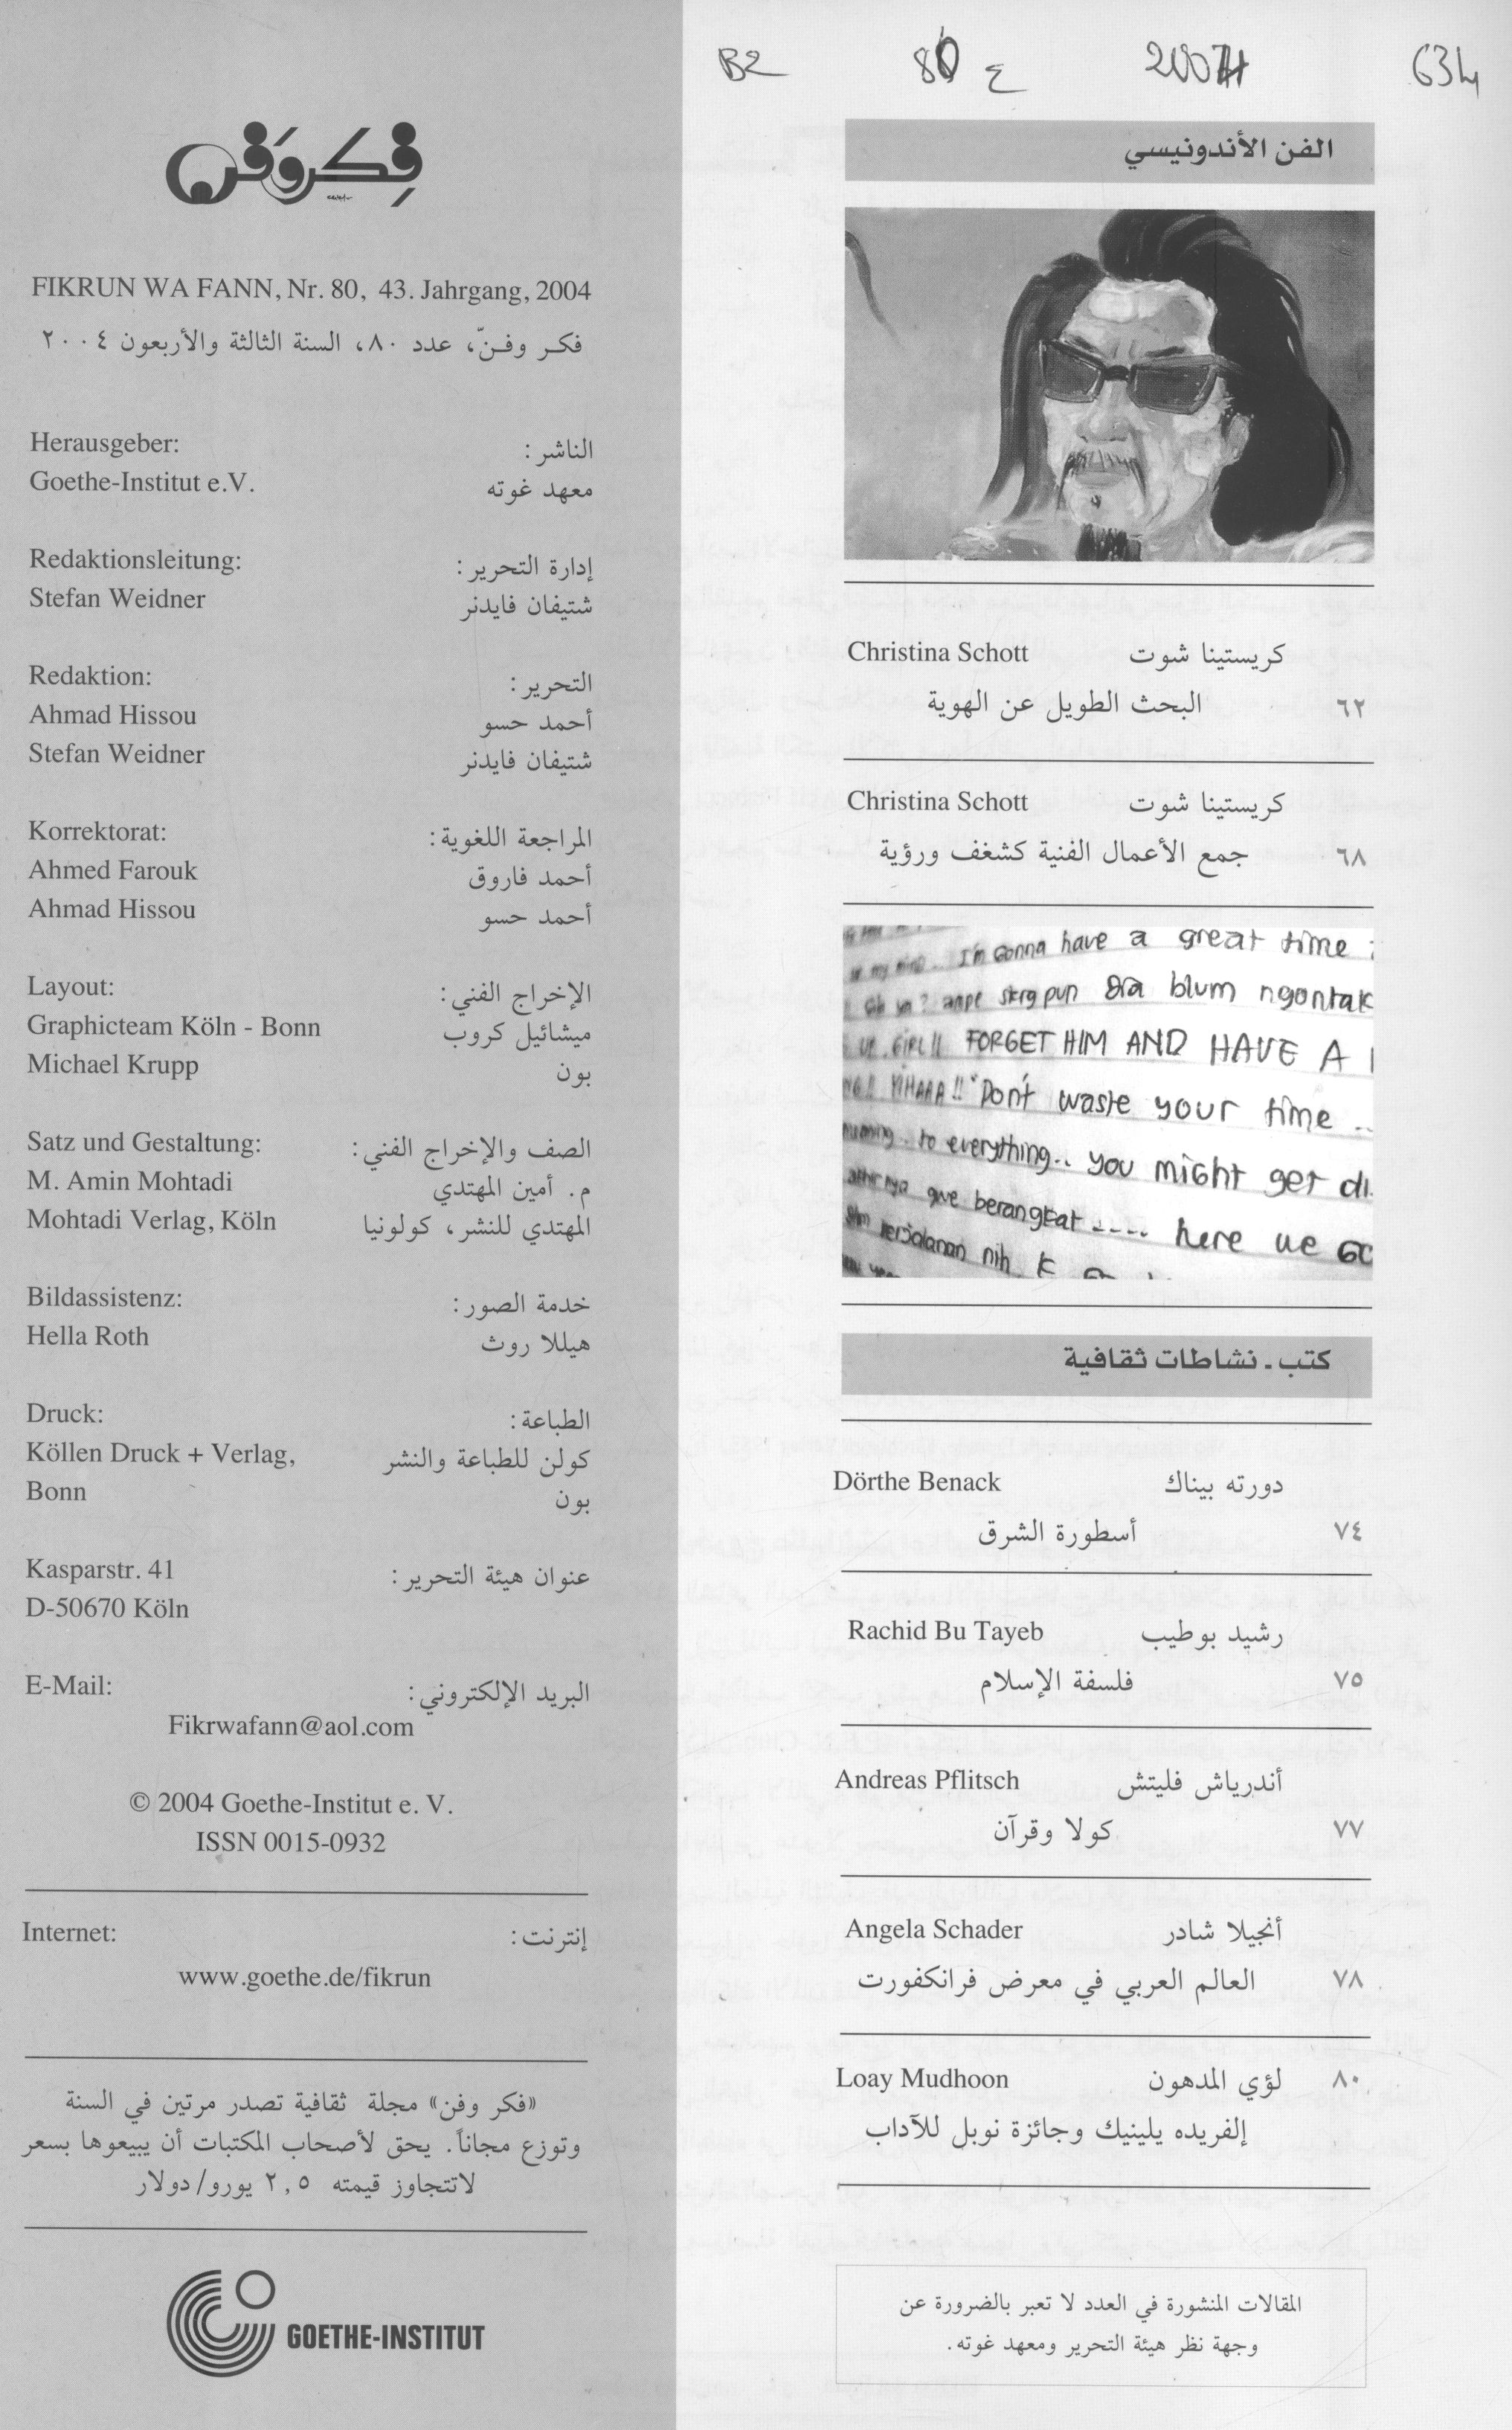 B2 80 ع 2004 634
فكر وفن
FIKRUN WA FANN, Nr. 80, 43. Jahrgang, 2004
فكـر وفـنّ، عدد ٨٠، السنة الثالثة والأربعون ٢٠٠٤
Herausgeber: الناشر:
Goethe-Institut e.V. معهد غوته
Redaktionsleitung: إدارة التحرير:
Stefan Weidner شتيفان فايدنر
Redaktion: التحرير:
Ahmad Hissou أحمد حسو
Stefan Weidner شتيفان فايدنر
Korrektorat: المراجعة اللغوية:
Ahmed Farouk أحمد فاروق
Ahmad Hissou أحمد حسو
Layout: الإخراج الفني:
Graphicteam Köln - Bonn ميشائيل كروب
Michael Krupp بون
Satz und Gestaltung: الصف والإخراج الفني:
M. Amin Mohtadi م. أمين المهتدي
Mohtadi Verlag, Köln المهتدي للنشر، كولونيا
Bildassistenz: خدمة الصور:
Hella Roth هيللا روث
Druck: الطباعة:
Köllen Druck + Verlag, كولن للطباعة والنشر
Bonn بون
Kasparstr. 41 عنوان هيئة التحرير:
D-50670 Köln
E-Mail: البريد الإلكتروني:
Fikrwafann@aol.com
© 2004 Goethe-Institut e. V.
ISSN 0015-0932
Internet: إنترنت:
www.goethe.de/fikrun
«فكر وفن» مجلة ثقافية تصدر مرتين في السنة
وتوزع مجاناً. يحق لأصحاب المكتبات أن يبيعوها بسعر
لاتتجاوز قيمته ٢,٥ يورو/دولار
GOETHE-INSTITUT
الفن الأندونيسي
Christina Schott كريستينا شوت
٦٢ البحث الطويل عن الهوية
Christina Schott كريستينا شوت
٦٨ جمع الأعمال الفنية كشغف ورؤية
I'm Gonna have a great time
skrg pun dia blum ngontak
FORGET HIM AND HAVE A
Don't waste your time ..
to everything.. you might get di
gwe berangkat ---- here we GO
perjalanan nih
كتب ـ نشاطات ثقافية
Dörthe Benack دورته بيناك
٧٤ أسطورة الشرق
Rachid Bu Tayeb رشيد بوطيب
٧٥ فلسفة الإسلام
Andreas Pflitsch أندرياش فليتش
٧٧ كولا وقرآن
Angela Schader أنجيلا شادر
٧٨ العالم العربي في معرض فرانكفورت
Loay Mudhoon لؤي المدهون ٨٠
إلفريده يلينيك وجائزة نوبل للآداب
المقالات المنشورة في العدد لا تعبر بالضرورة عن
وجهة نظر هيئة التحرير ومعهد غوته.